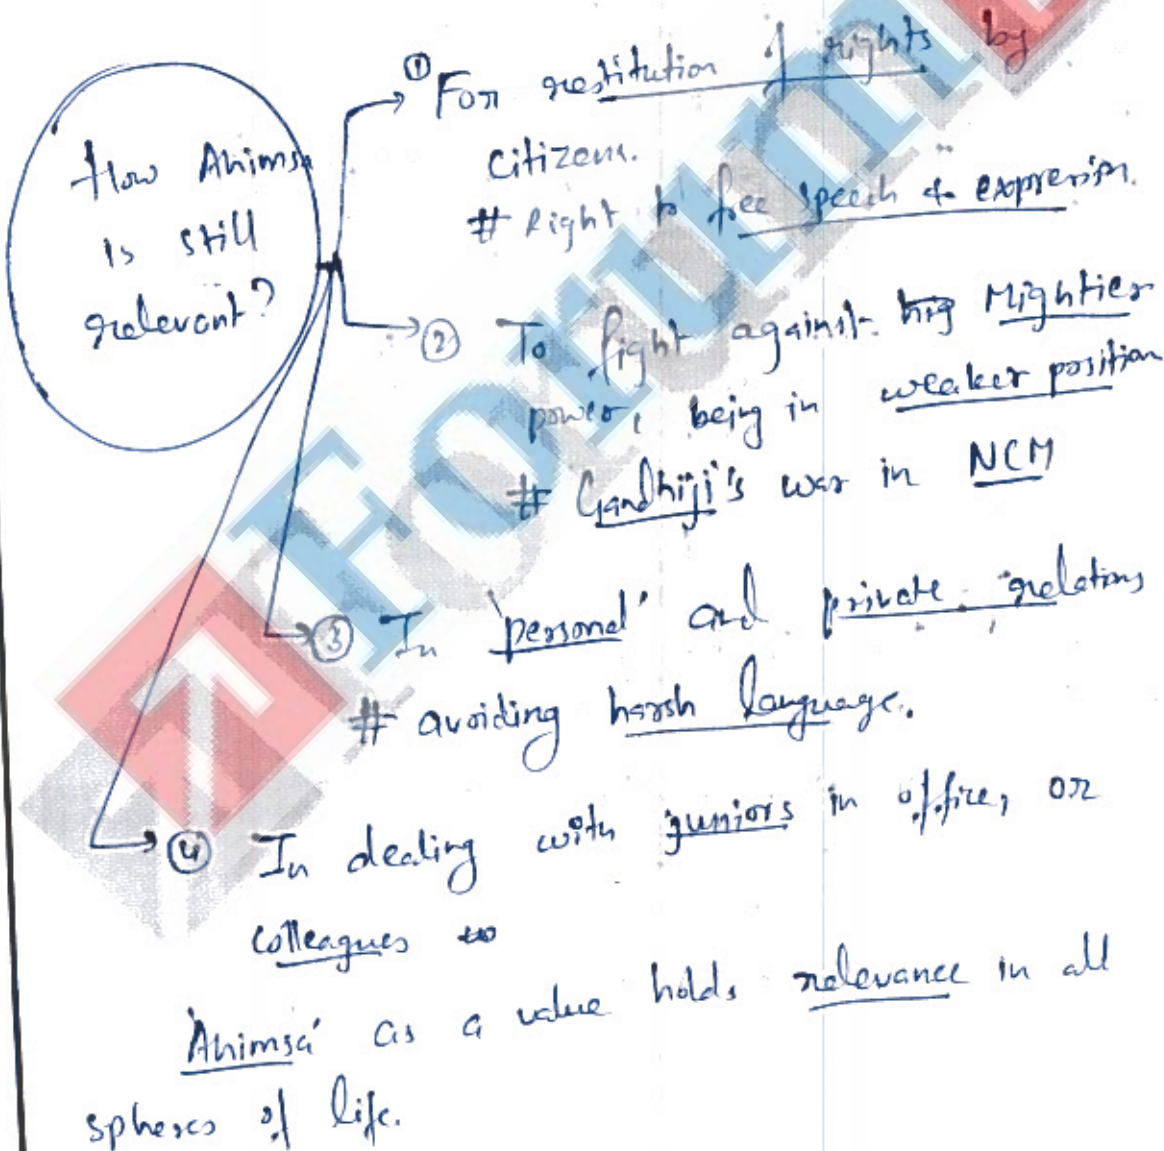 How Ahimsa
is still
relevant?
① For restitution of rights by
citizens.
# Right to free speech & expression.
② To fight against Mightier
power, being in weaker position
# Gandhiji's war in NCM
③ In 'personal' and private relations
# avoiding harsh language.
④ In dealing with juniors in office, or
colleagues
'Ahimsa' as a value holds relevance in all
spheres of life.
Forum